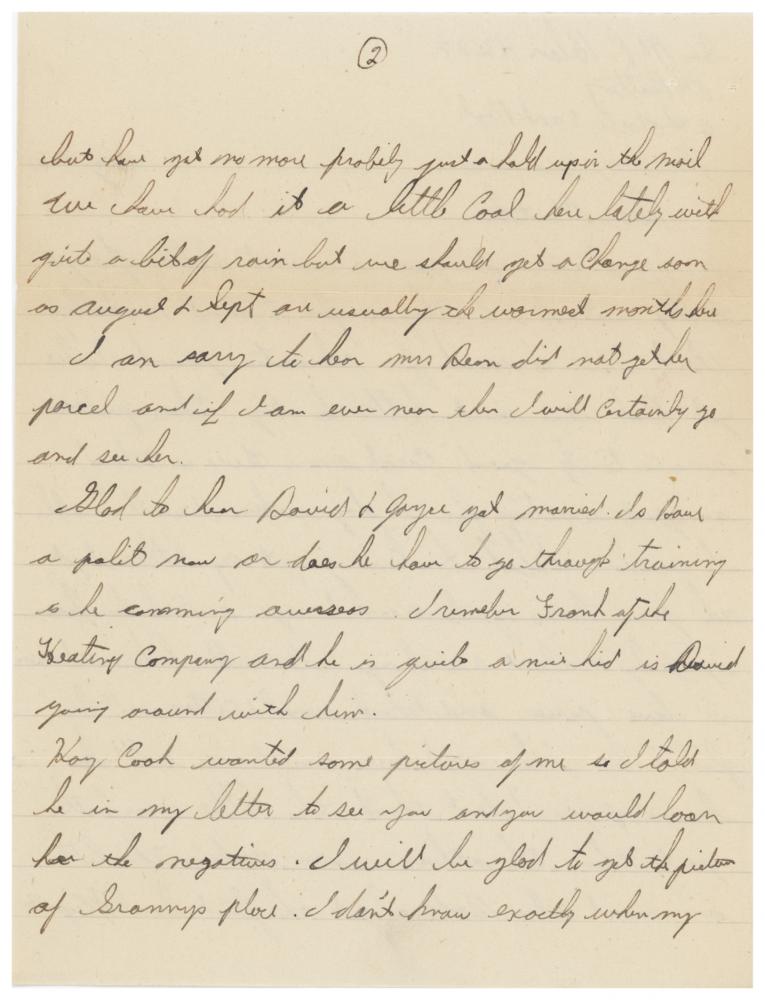 2
but have got no more probily just a hold up in the mail
We have had it a little Cool here lately with
quite a bit of rain but we should get a change soon
as August & Sept are usually the warmest months here
I am sary to hear Mrs Dean did not get her
parcel and if I am ever near her I will certainly go
and see her.
Glad to hear David & Joyce got married. Is Dave
a polit now or does he have to go through training
is he comming overseas. I remeber Frank of the
Heating Company and he is quite a nice kid is David
going around with him.
Kay Cook wanted some pictures of me so I told
he in my letter to see you and you would loan
her the negatives. I will be glad to get the picture
of Grannys place. I don't know exactly when my